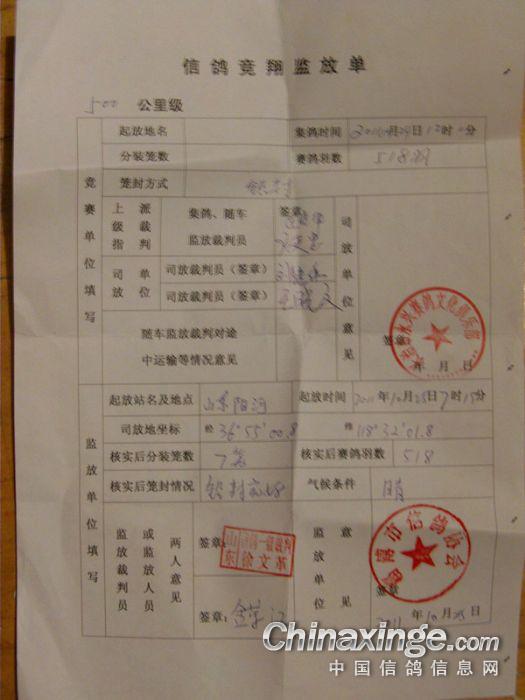 信鸽竞翔监放单
500 公里级
竞赛单位填写
起放地名 集鸽时间 12时
分装笼数 赛鸽羽数 518羽
笼封方式 铅封
上级指派裁判 集鸽、随车监放裁判员 签章
司放单位 司放裁判员（签章）
司放裁判员（签章）
司放单位意见
签章
年 月 日
随车监放裁判对途
中运输等情况意见
监放单位填写
起放站名及地点 山东阳河 起放时间 2011年10月25日7时15分
司放地坐标 经 36°55′00.8 纬 118°32′01.8
核实后分装笼数 7笼 核实后赛鸽羽数 518
核实后笼封情况 铅封 气候条件 晴
监放裁判员或监放人员两人意见
签章： 山东 徐文革
签章：
监放单位意见
市信鸽协会
签章
年10月25日
Chinaxinge.com
中国信鸽信息网